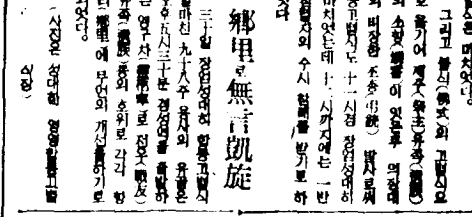 그리고 불식(佛式)의 고별식으
로 옮기어 제주(祭主)유족(遺族)
의 소향(燒香)이 잇은후 의장대
의 비장한 조총(弔銃) 발사로써
동고별식도 十一시경 장엄성대히
마치엇는데 十二시까지에는 一반
자의 수시 참배를 받기로 하
鄕里로無言凱旋
三十일 장엄성대히 합동고별식
마친 九十八주 용사의 유골은
오후五시三十분 경성역을 출발하
는 연구차(靈柩車)로 전우(戰友)
유족(遺族)들의 호위로 각각 향
(鄕里)에 무언의 개선을하기로
되엇다
(사진은 성대한 영령합동고별
식장)